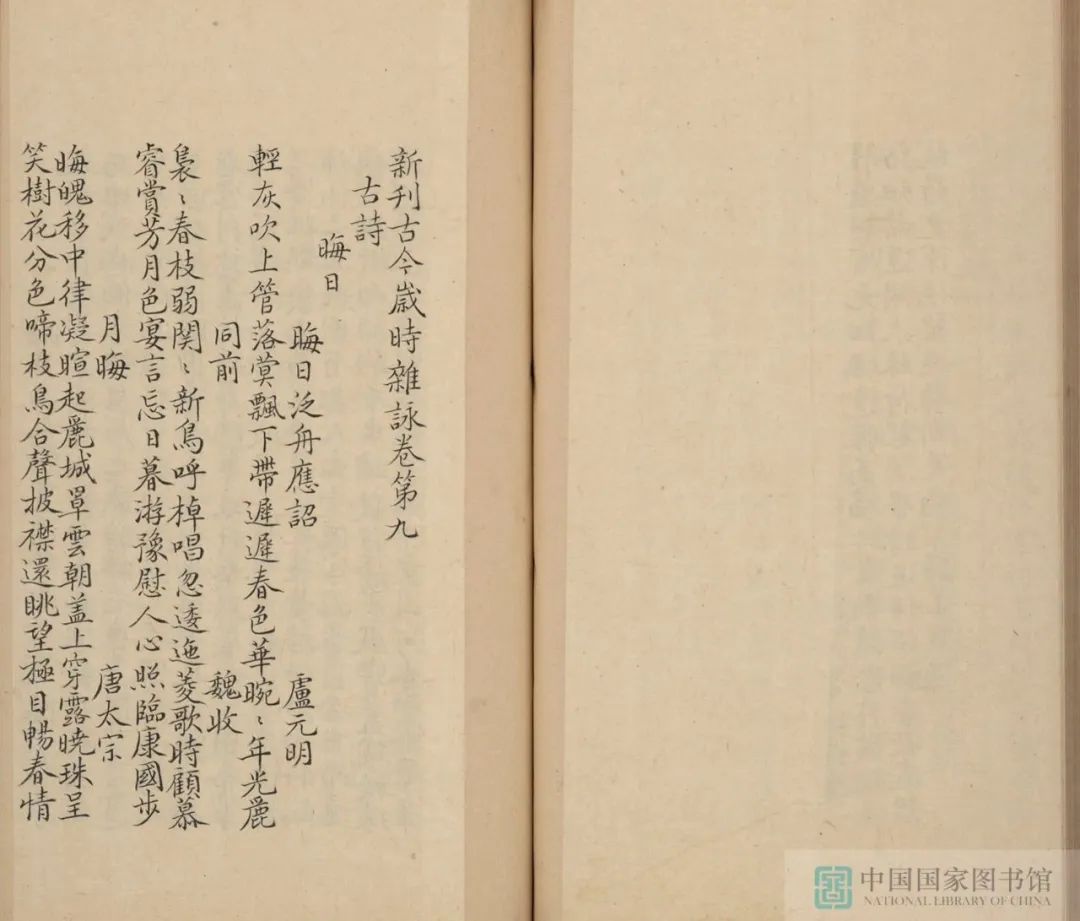 新刊古今歲時雜詠卷第九
古詩
晦日
晦日泛舟應詔 盧元明
輕灰吹上管落蓂飄下帶遲遲春色華晼〻年光麗
同前 魏收
裊〻春枝弱関〻新鳥呼棹唱忽逶迤菱歌時顧慕
睿賞芳月色宴言忘日暮游豫慰人心照臨康國步
月晦 唐太宗
晦魄移中律凝暄起麗城罩雲朝盖上穿露曉珠呈
笑樹花分色啼枝鳥合聲披襟還眺望極目暢春情
中国国家图书馆
NATIONAL LIBRARY OF CHINA